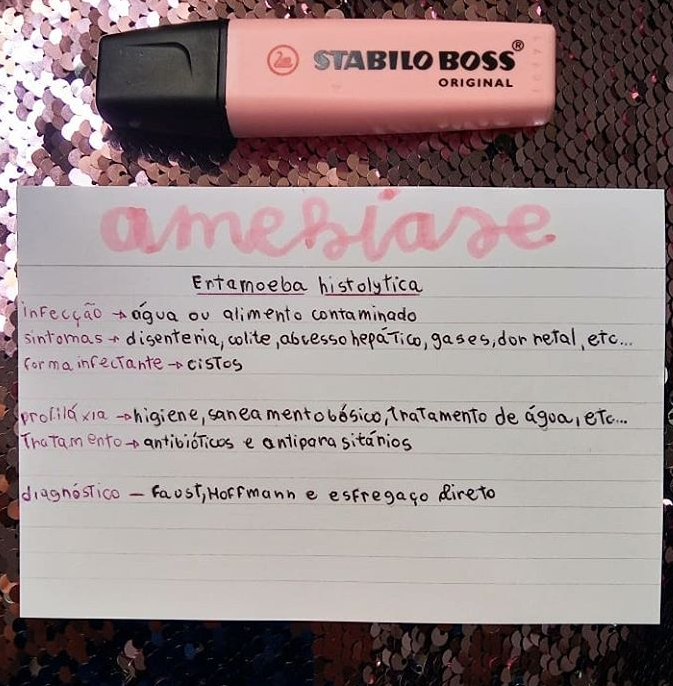 STABILO BOSS®
ORIGINAL
amebíase
Entamoeba histolytica
infecção → água ou alimento contaminado
sintomas → disenteria, colite, abcesso hepático, gases, dor retal, etc...
forma infectante → cistos
profiláxia → higiene, saneamento básico, tratamento de água, etc...
tratamento → antibióticos e antiparasitários
diagnóstico — Faust, Hoffmann e esfregaço direto